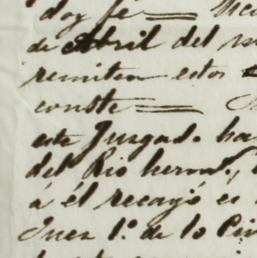 doy fé —
de Abril del
remiten estos
conste =
este Juzgado ha
del Rio herm.,
á él recayó es
Juez 1º. de lo Civ